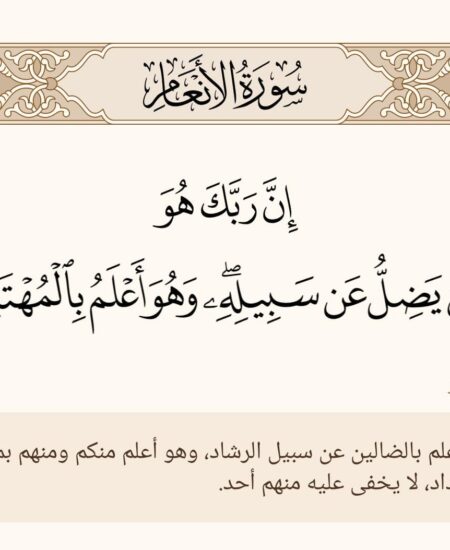 سُورَةُ الأَنْعَامِ
إِنَّ رَبَّكَ هُوَ
يَضِلُّ عَن سَبِيلِهِۦۖ وَهُوَ أَعْلَمُ
بالضالين عن سبيل الرشاد، وهو أعلم منكم ومنهم
لا يخفى عليه منهم أحد.